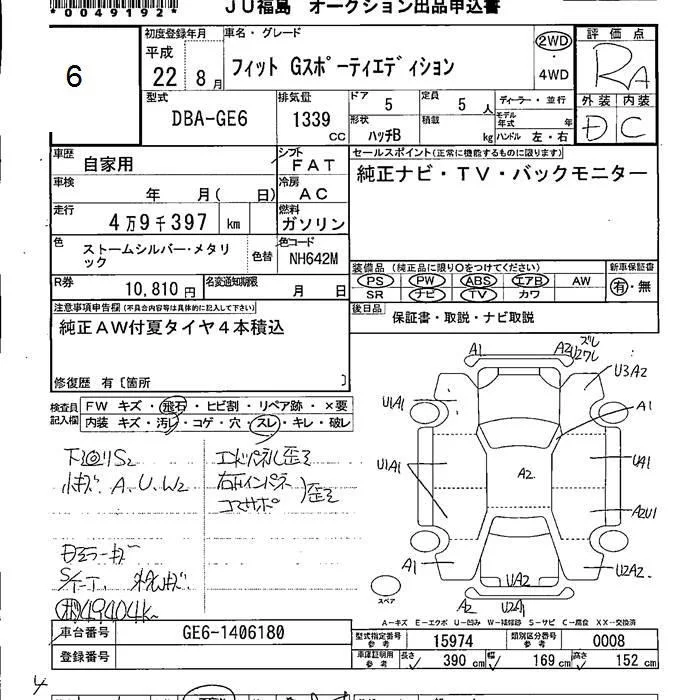 *0049192*
JU福島 オークション出品申込書
6
初度登録年月
平成
22 8月
車名・グレード
フィット Gスポーティエディション
2WD
4WD
評価点
RA
外装 内装
D C
型式
DBA-GE6
排気量
1339
CC
ドア
5
定員
5 人
ディーラー・並行
モデル年式 年
形状
ハッチB
積載
kg
ハンドル 左・右
車歴
自家用
シフト
FAT
セールスポイント(正常に機能するものに限ります)
純正ナビ・TV・バックモニター
車検
年 月( 日)
冷房
AC
走行
4万9千397 km
燃料
ガソリン
色
ストームシルバー・メタリ
ック
色替
色コード
NH642M
装備品(純正品に限り○をつけてください)
新車保証書
PS PW ABS エアB AW
SR ナビ TV カワ
有・無
R券
10,810円
名変通知期限
月 日
後日品
保証書・取説・ナビ取説
注意事項申告欄(不具合内容等は具体的に記入して下さい)
純正AW付夏タイヤ4本積込
修復歴 有〔箇所 〕
検査員
記入欄
FW キズ・飛石・ヒビ割・リペア跡・×要
内装 キズ・汚レ・コゲ・穴・スレ・キレ・破レ
下回りS2
小キズ A、U、W2
エンドパネル歪ミ
右インパネ
コアサポ
歪ミ
49404k
A1
A2U2
ズレ
ワレ
U3A2
U1A1
A1
U1A1
A2
UA1
A2U1
A1
UA2
U2A2
A2
U2A1
スペア
A－キズ E－エクボ U－凹み W－補修跡 S－サビ C－腐食 XX－交換済
車台番号
GE6-1406180
登録番号
型式指定番号
参考
15974
類別区分番号
参考
0008
車庫証明用
参考
長さ 390 cm 幅 169 cm 高さ 152 cm
4